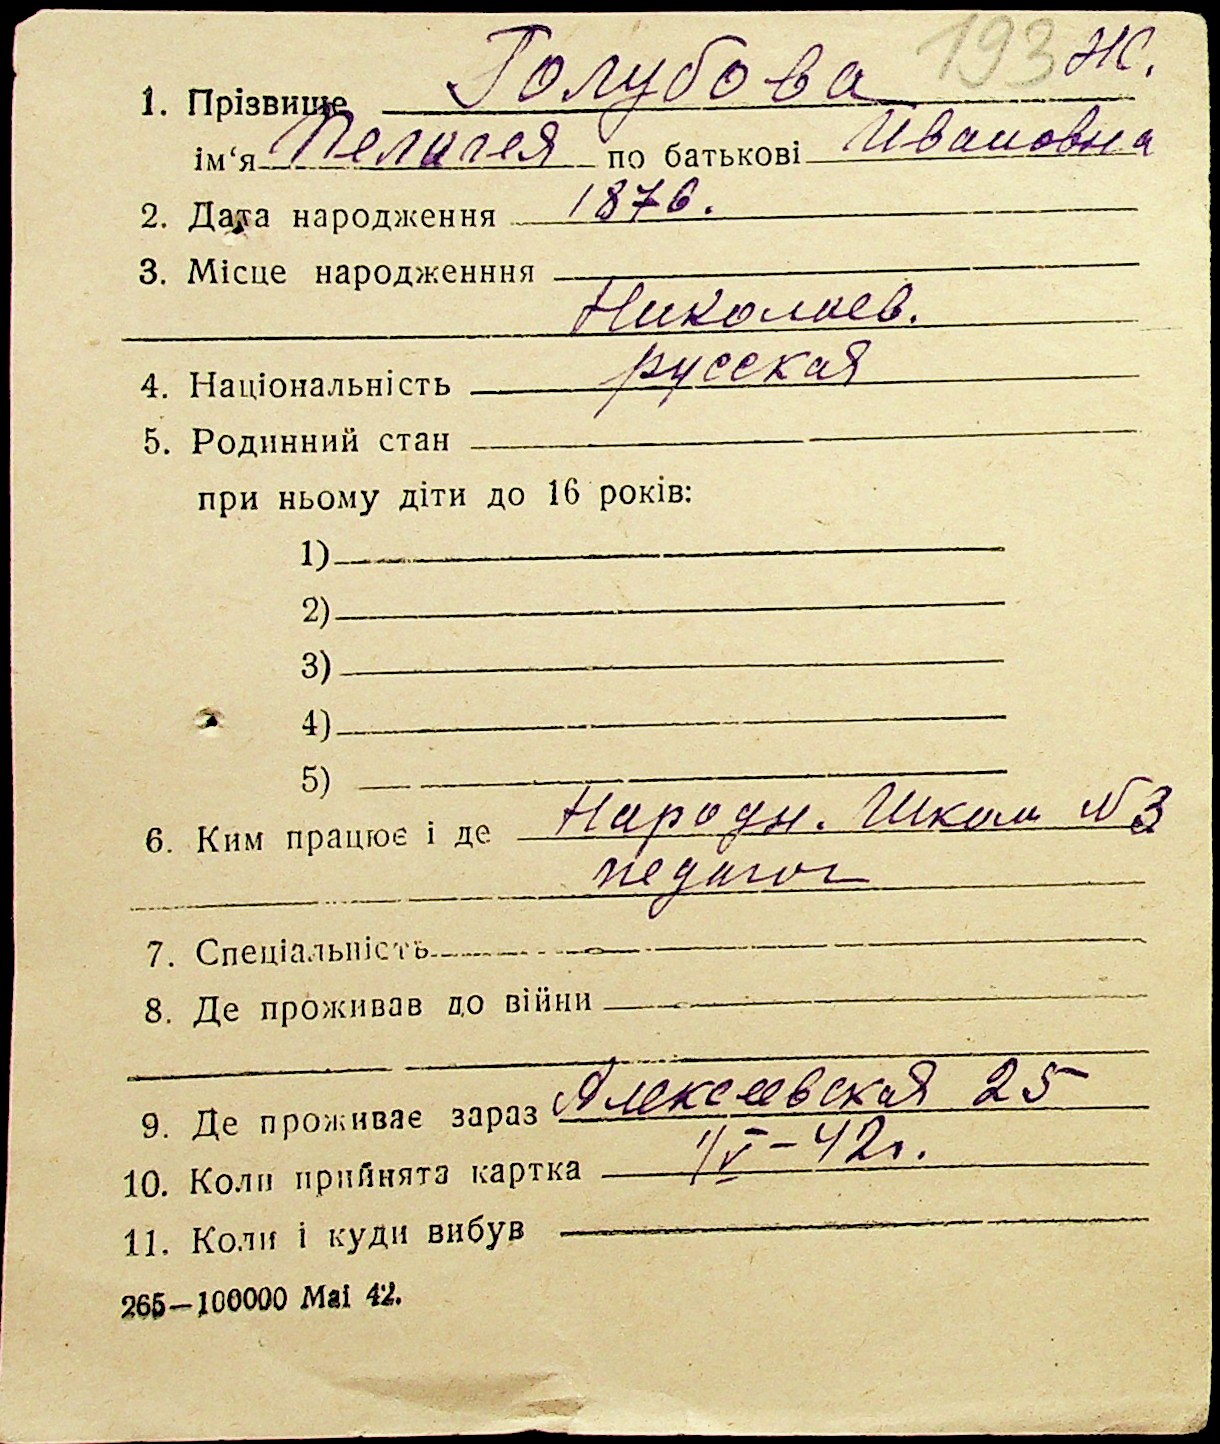 193 Ж.
1. Прізвище Голубова
ім‘я Пелагея по батькові Ивановна
2. Дата народження 1876.
3. Місце народженння
Николаев.
4. Національність русская
5. Родинний стан
при ньому діти до 16 років:
1)
2)
3)
4)
5)
6. Ким працює і де Народн. Школ №3
педагог
7. Спеціальність
8. Де проживав до війни
9. Де проживає зараз Алексеевская 25
10. Коли прийнята картка V – 42 г.
11. Коли і куди вибув
265—100000 Mai 42.